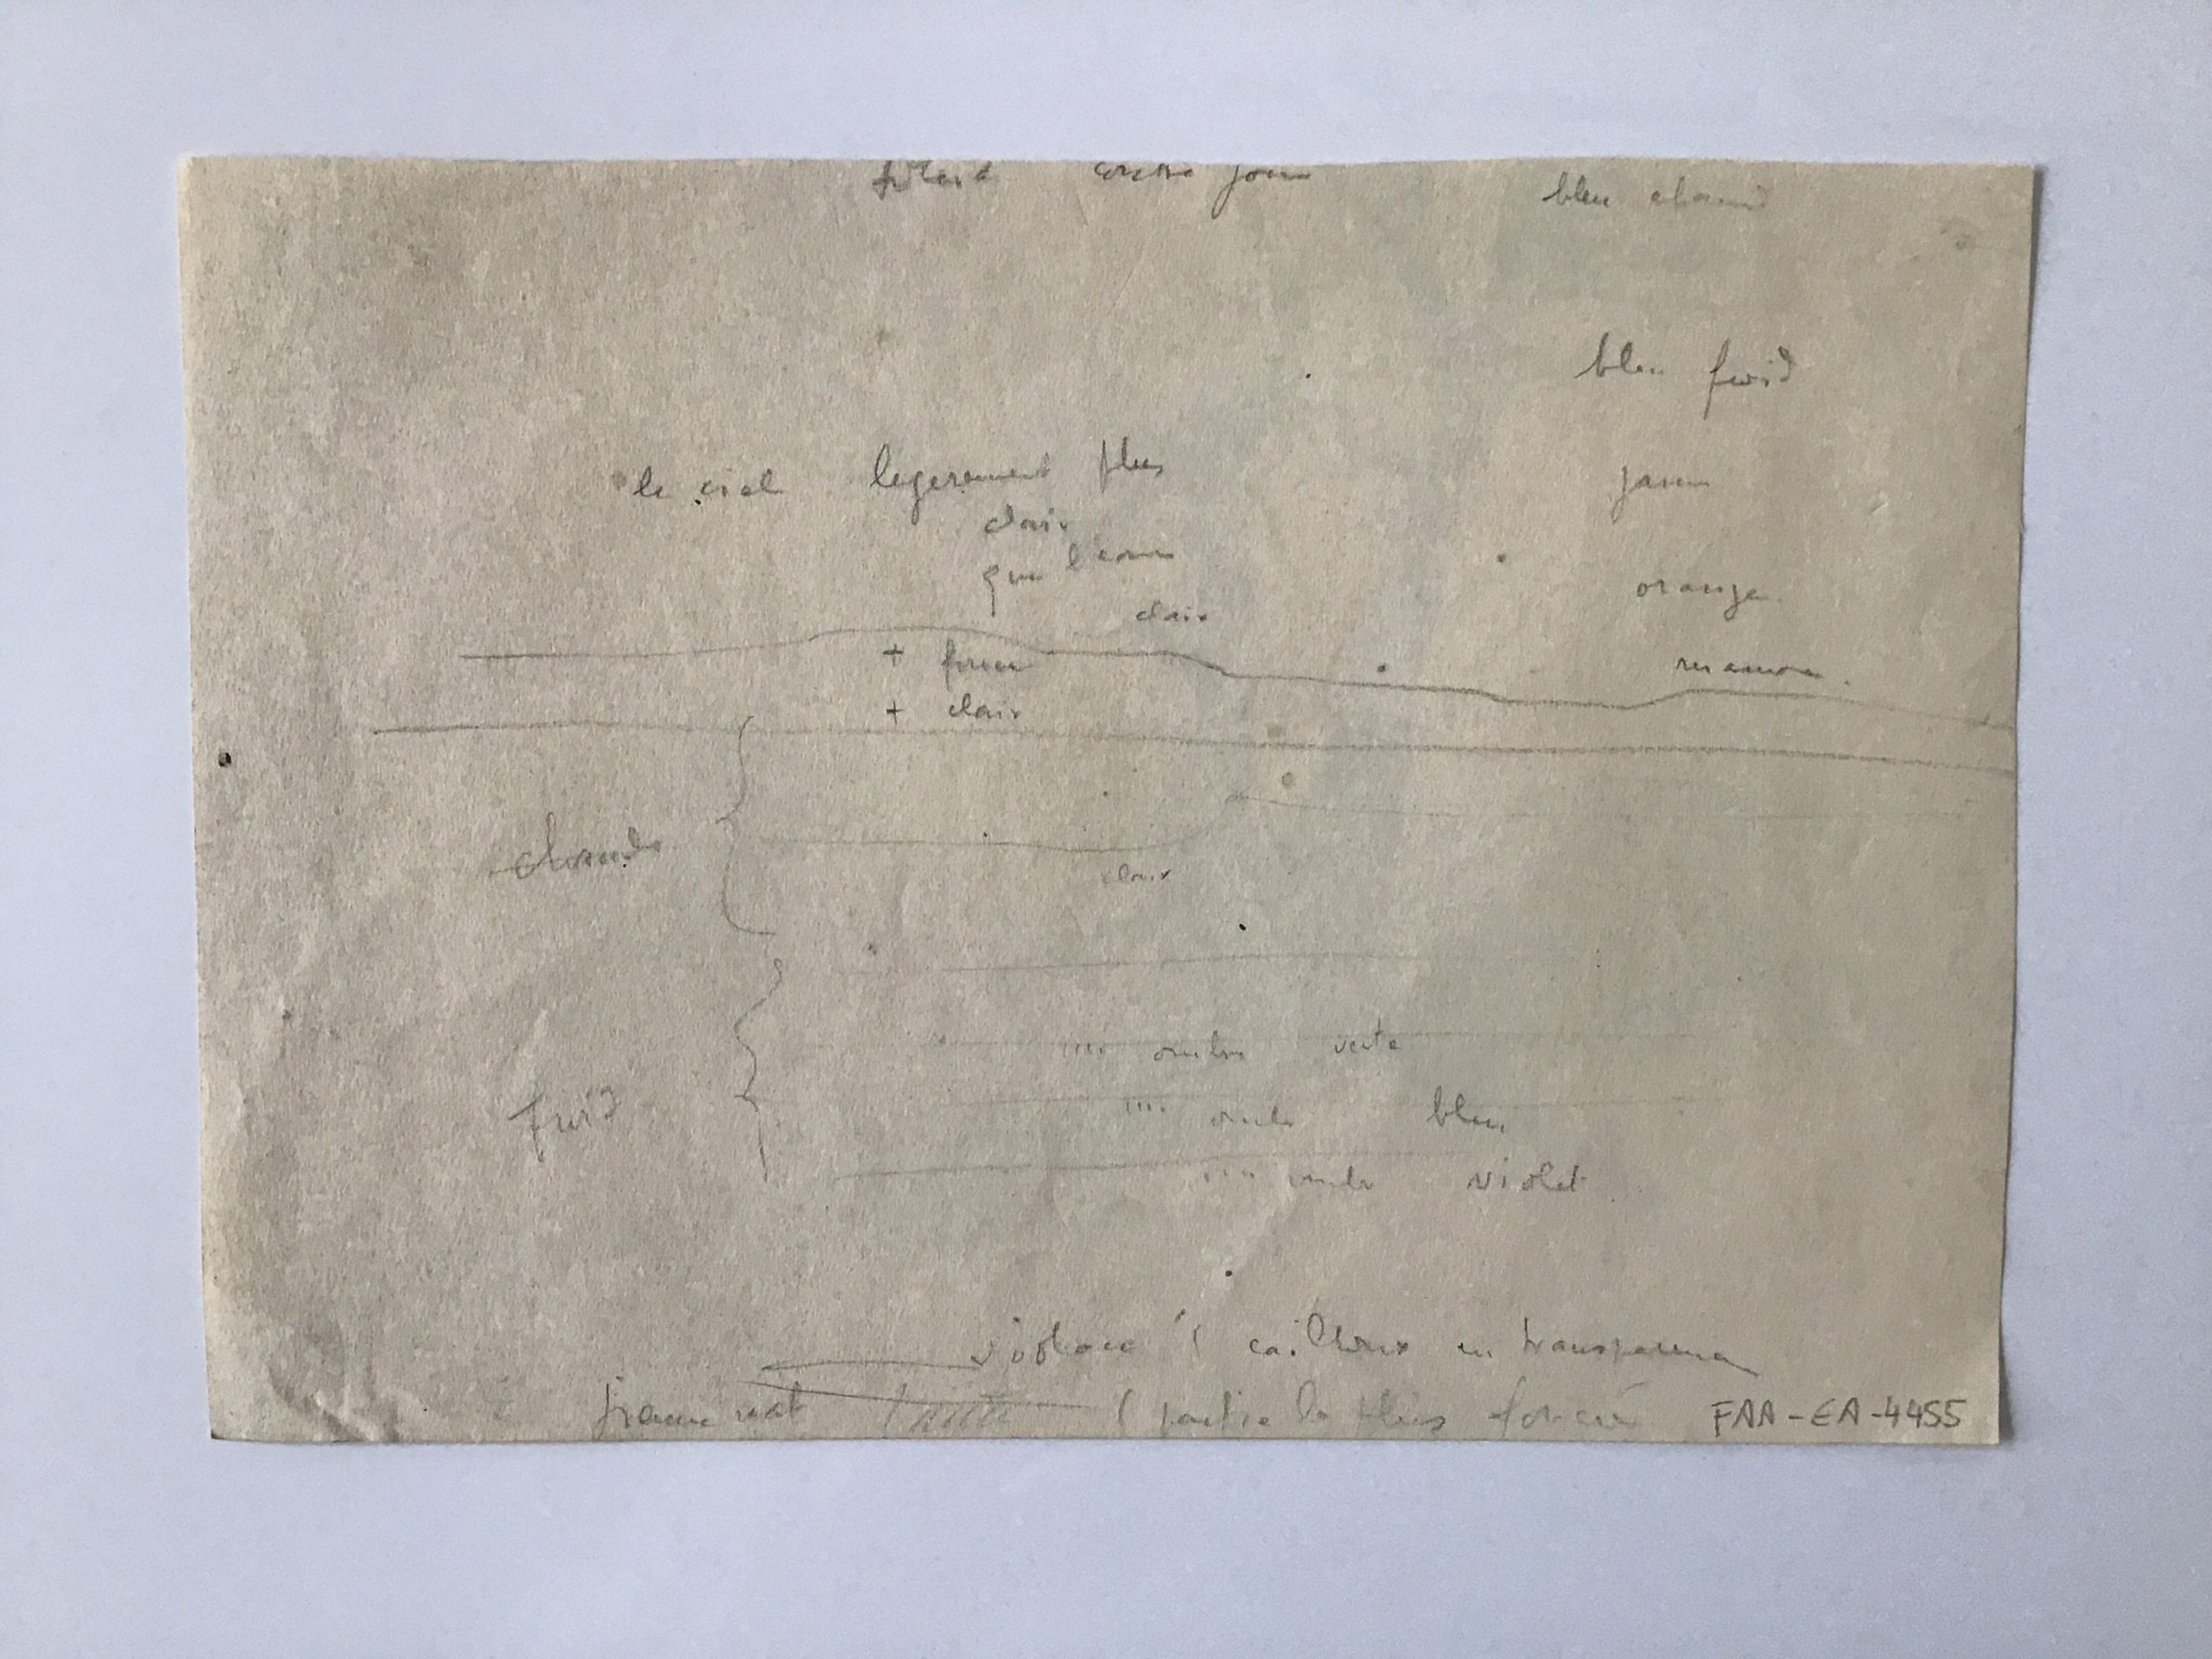 contre jour
bleu chaud
bleu froid
le ciel legerement plus
clair
que l'eau
jaune
orange
clair
+ foncé
+ clair
mauve
chaude
clair
Froid
ombre verte
ombre bleu
ombre violet
violacé ( cailloux en transparence
( partie la plus foncée
FAA-EA-4455